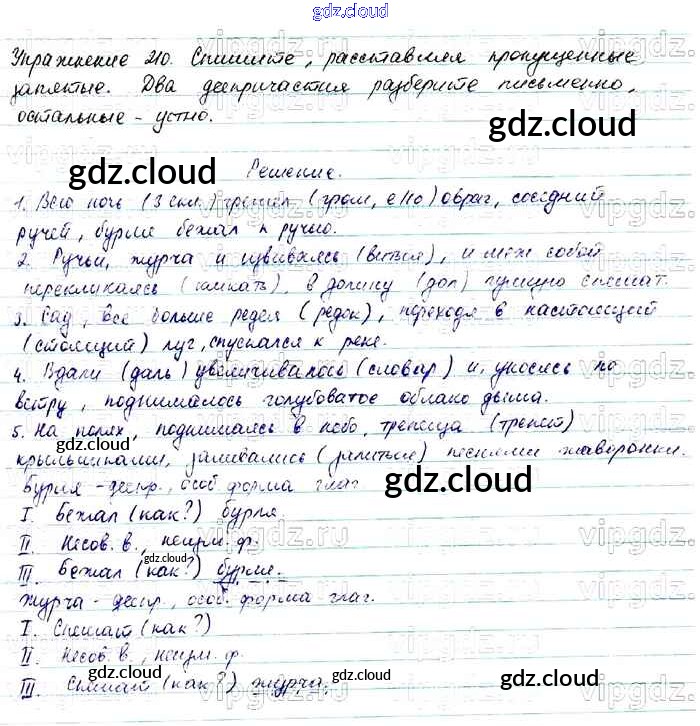 gdz.cloud
Упражнение 210. Спишите, расставляя пропущенные
запятые. Два деепричастия разберите письменно,
остальные - устно.
gdz.cloud
gdz.cloud
Решение.
1. Всю ночь (3 скл.) гремел (гром, е//о) овраг, соседний
ручей, бурля бежал к ручью.
2. Ручьи, журча и извиваясь (виться), и меж собой
перекликаясь (кликать), в долину (дол) гулкую спешат.
3. Сад, все больше редея (редок), переходя в настоящий
(стоящий) луг, спускался к реке.
4. Вдали (даль) увеличивалось (словар) и, уносясь по
ветру, поднималось голубоватое облако дыма.
5. На полях, поднимаясь в небо, трепеща (трепет)
gdz.cloud
крылышками, заливались (залиться) песнями жаворонки.
Бурля - деепр., особ. форма глаг.
gdz.cloud
I. Бежал (как?) бурля.
II. Несов. в., неизм. ф.
gdz.cloud
III. Бежал (как?) бурля.
Журча - деепр., особ. форма глаг.
I. Спешат (как?)
II. Несов. в., неизм. ф.
III. Спешат (как?) журча.
gdz.cloud
gdz.cloud